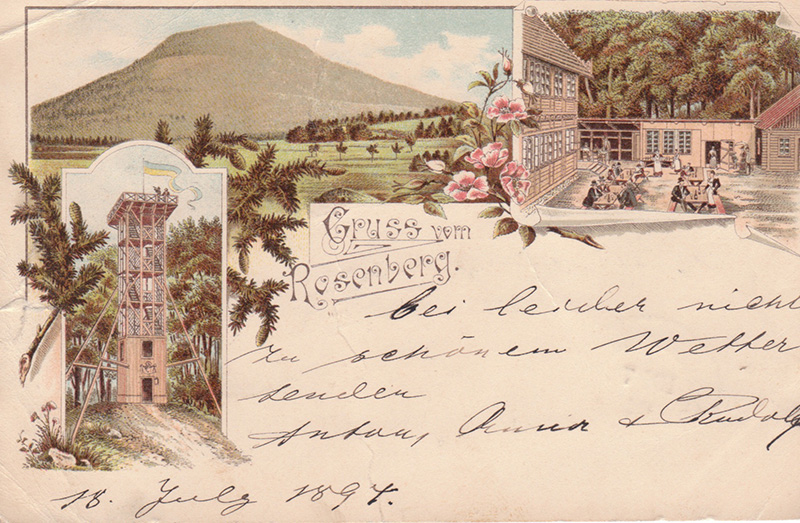 Gruss vom
Rosenberg.
bei leider nicht
zu schönem Wetter
senden
Anton, Anna & Rudolf
18. July 1897.